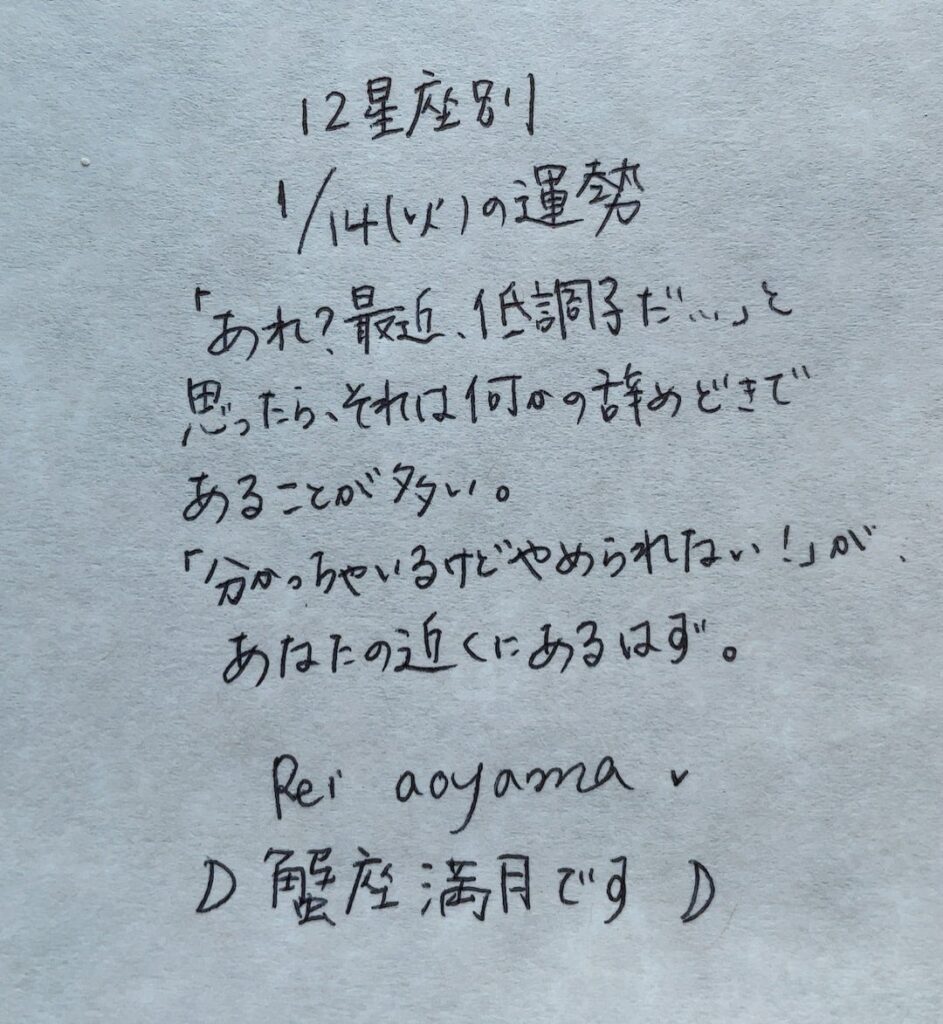 12星座別
1/14(火)の運勢
「あれ?最近、低調子だ…」と
思ったら、それは何かの辞めどきで
あることが多い。
「分かっちゃいるけどやめられない!」が、
あなたの近くにあるはず。
Rei aoyama
蟹座満月です